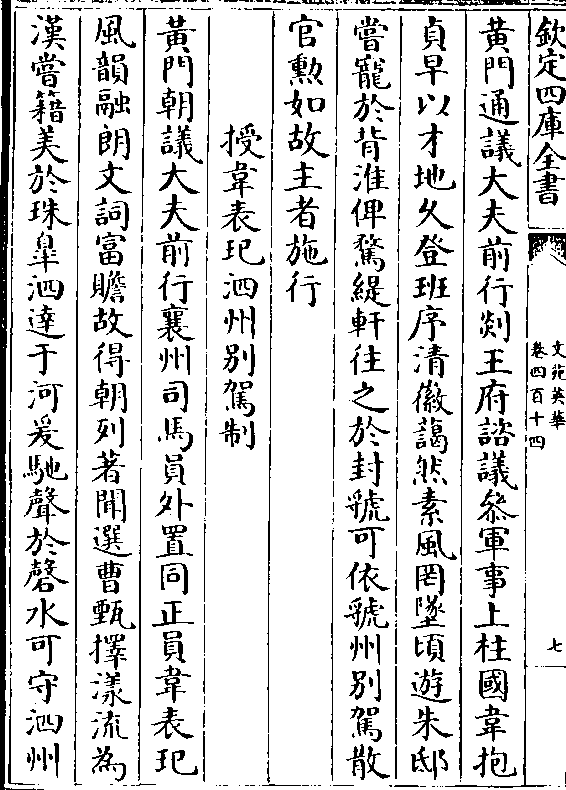 欽定四庫全書
文苑英華
卷四百十四
七
黄門通議大夫前行剡王府諮議叅軍事上柱國韋抱
貞早以才地久登班序清徽藹然素風罔墜頃遊朱邸
嘗寵於背淮俾騖緹軒往之於封虢可依虢州别駕散
官勲如故主者施行
授韋表𤣱泗州别駕制
黄門朝議大夫前行襄州司馬員外置同正員韋表𤣱
風韻融朗文詞富贍故得朝列著聞選曹甄擇漾流為
漢嘗籍美於珠皐泗達于河爰馳聲於磬水可守泗州